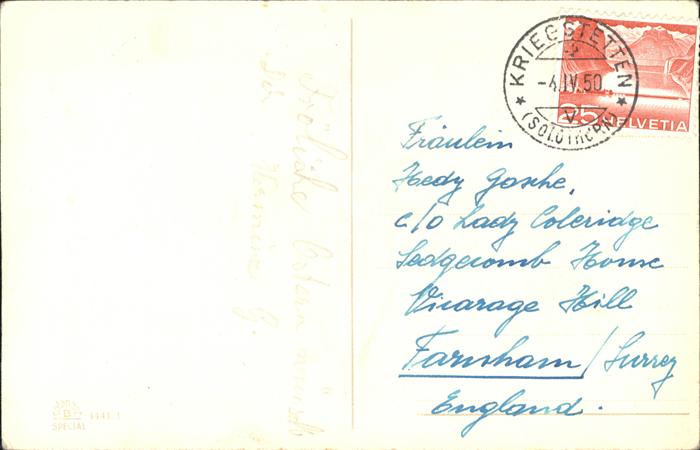 Fröhliche Ostern wünscht
Dir
Hermine G.
KRIEGSTETTEN
-4.IV.50
(SOLOTHURN)
25 HELVETIA
Fräulein
Hedy Gasche,
c/o Lady Coleridge
Sedgecomb House
Vicarage Hill
Farnham / Surrey
England.
4441/1
SPECIAL